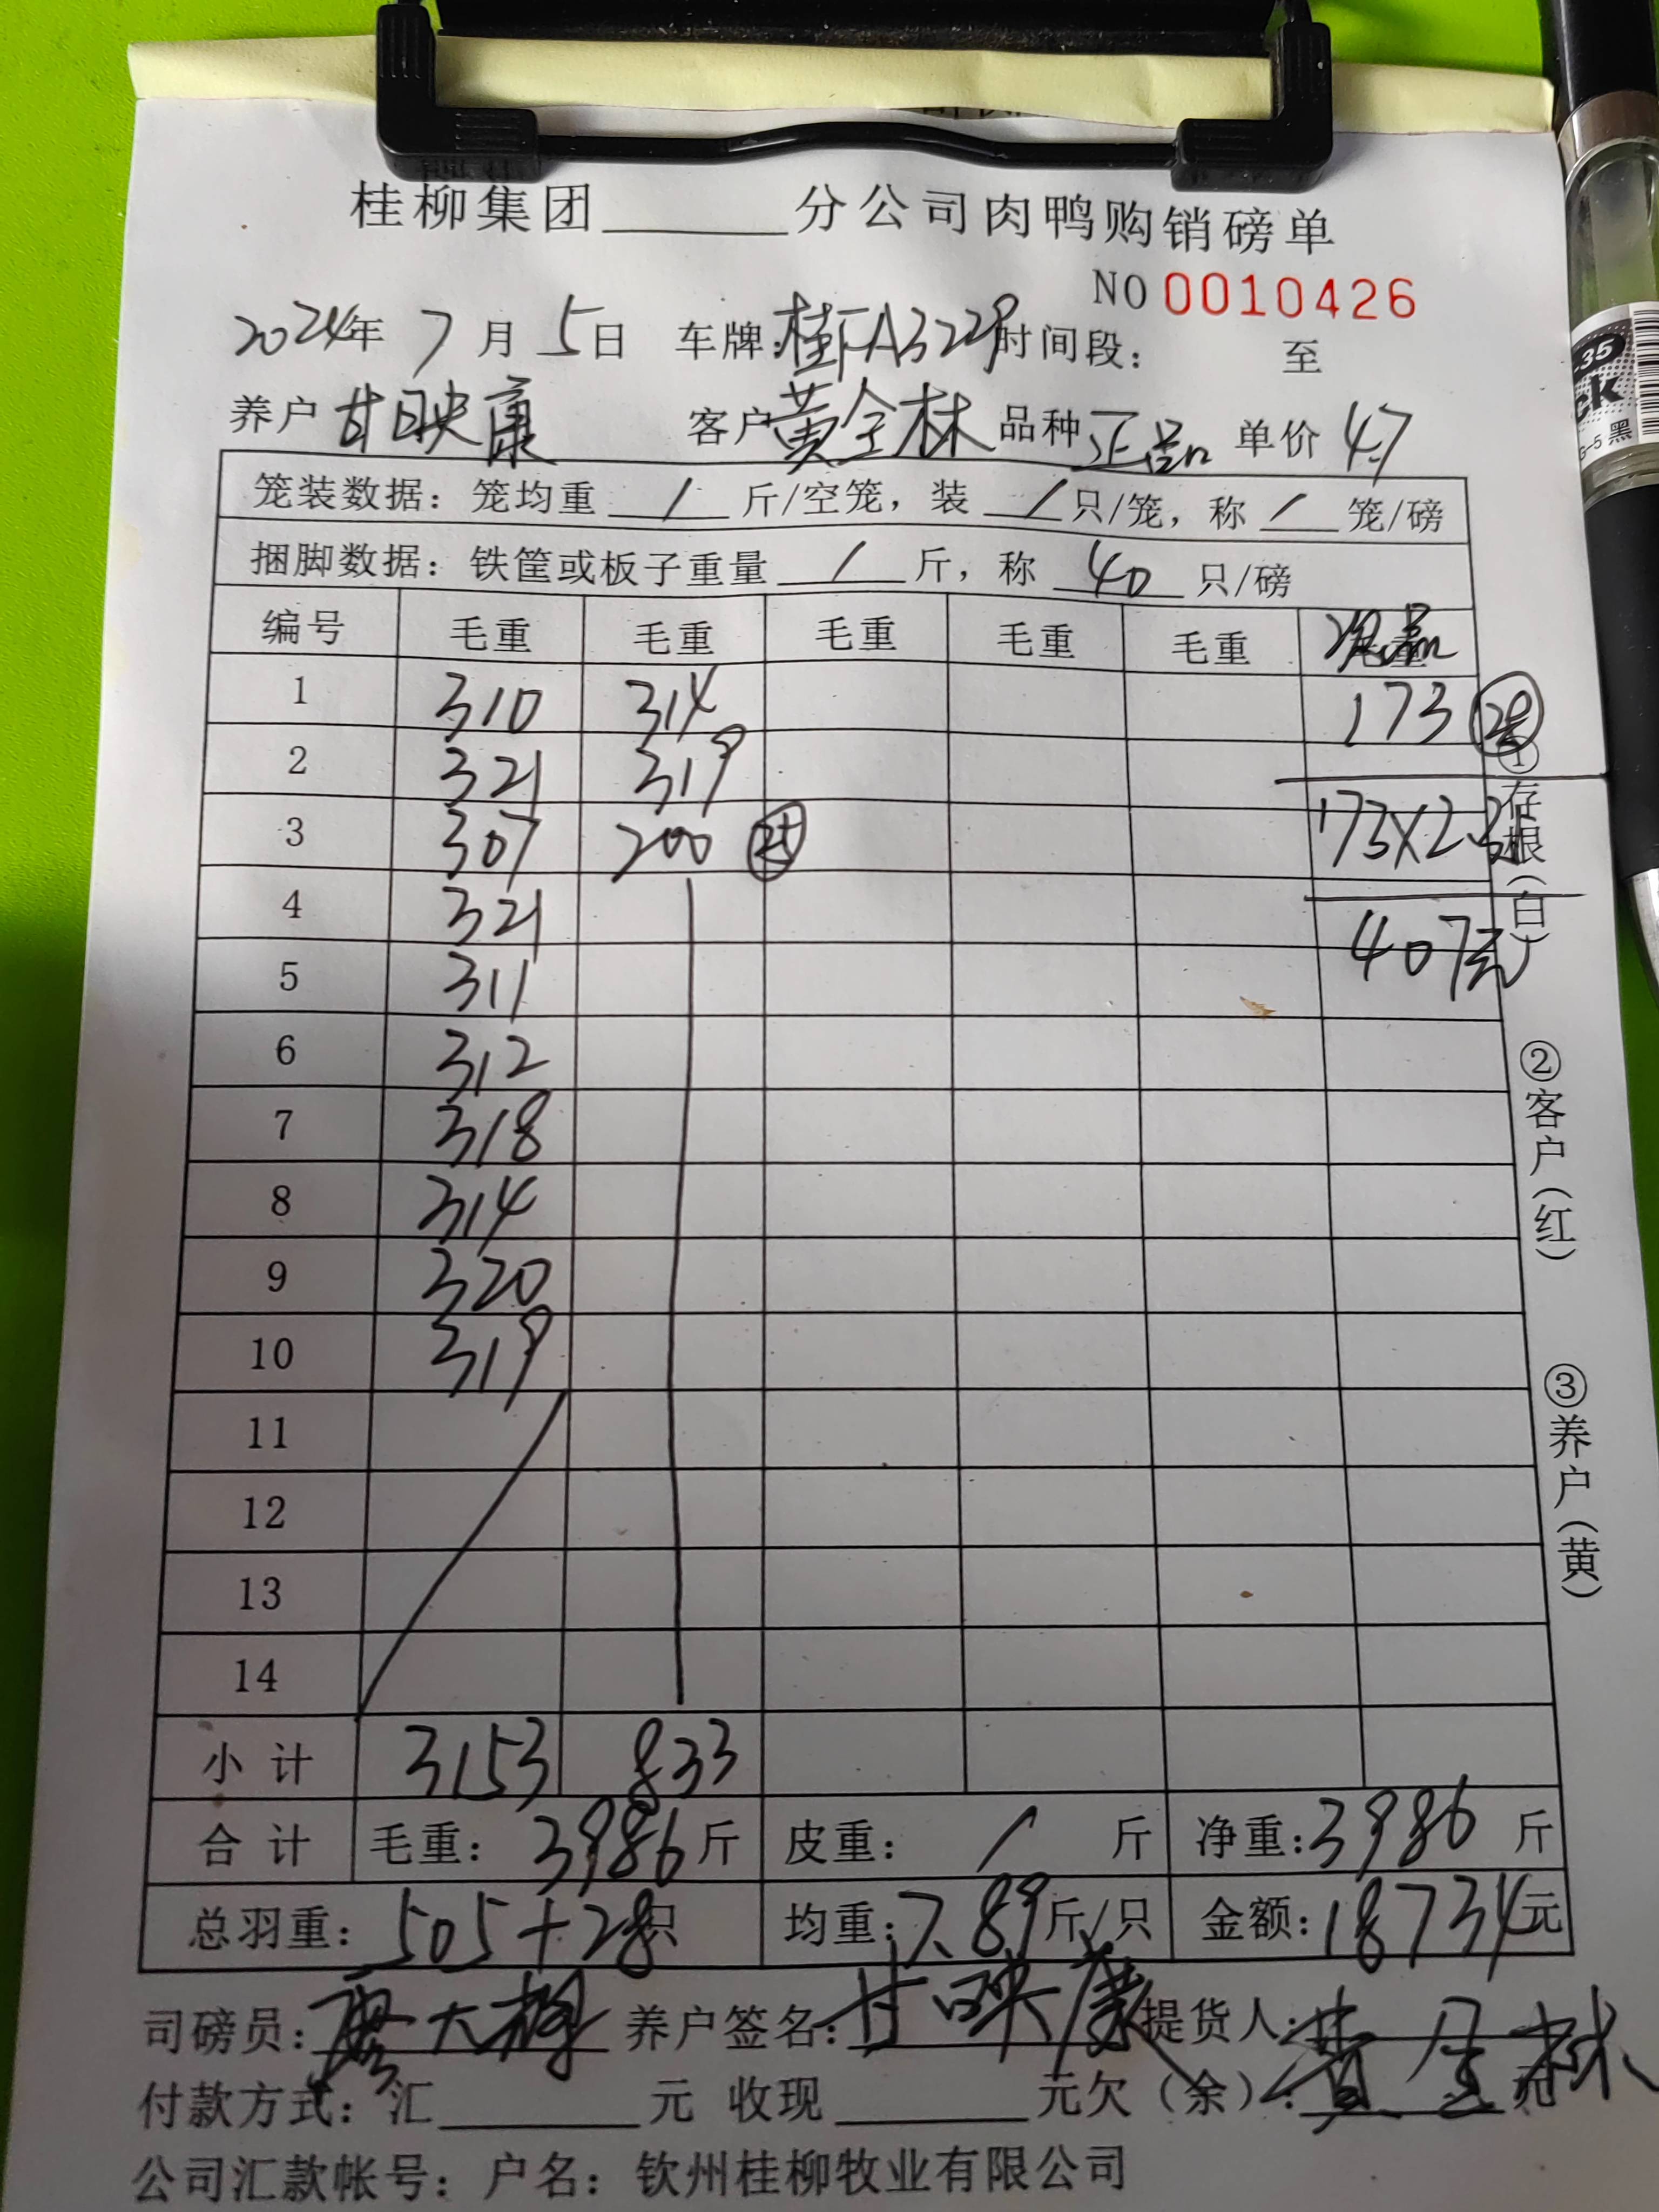 桂柳集团______分公司肉鸭购销磅单
NO 0010426
2024年 7 月 5日 车牌:桂FA3229时间段: 至
养户 甘映康 客户 黄全林 品种 正品 单价 4.7
笼装数据: 笼均重 / 斤/空笼, 装 / 只/笼, 称 / 笼/磅
捆脚数据: 铁筐或板子重量 / 斤, 称 40 只/磅
编号 毛重 毛重 毛重 毛重 毛重 次品
1 310 314 173 28
2 321 319
3 307 200 25 173×2.35
4 321 407元
5 311
6 312
7 318
8 314
9 320
10 319
11
12
13
14
小计 3153 833
合计 毛重: 3986斤 皮重: / 斤 净重:3986 斤
总羽重: 505+28只 均重:7.89斤/只 金额:18734元
司磅员: 养户签名:甘映康 提货人:黄全林
付款方式: 汇______元 收现______元欠(余): 元
公司汇款帐号: 户名: 钦州桂柳牧业有限公司
①存根(白)
②客户(红)
③养户(黄)
-35
ck
G-5 黑